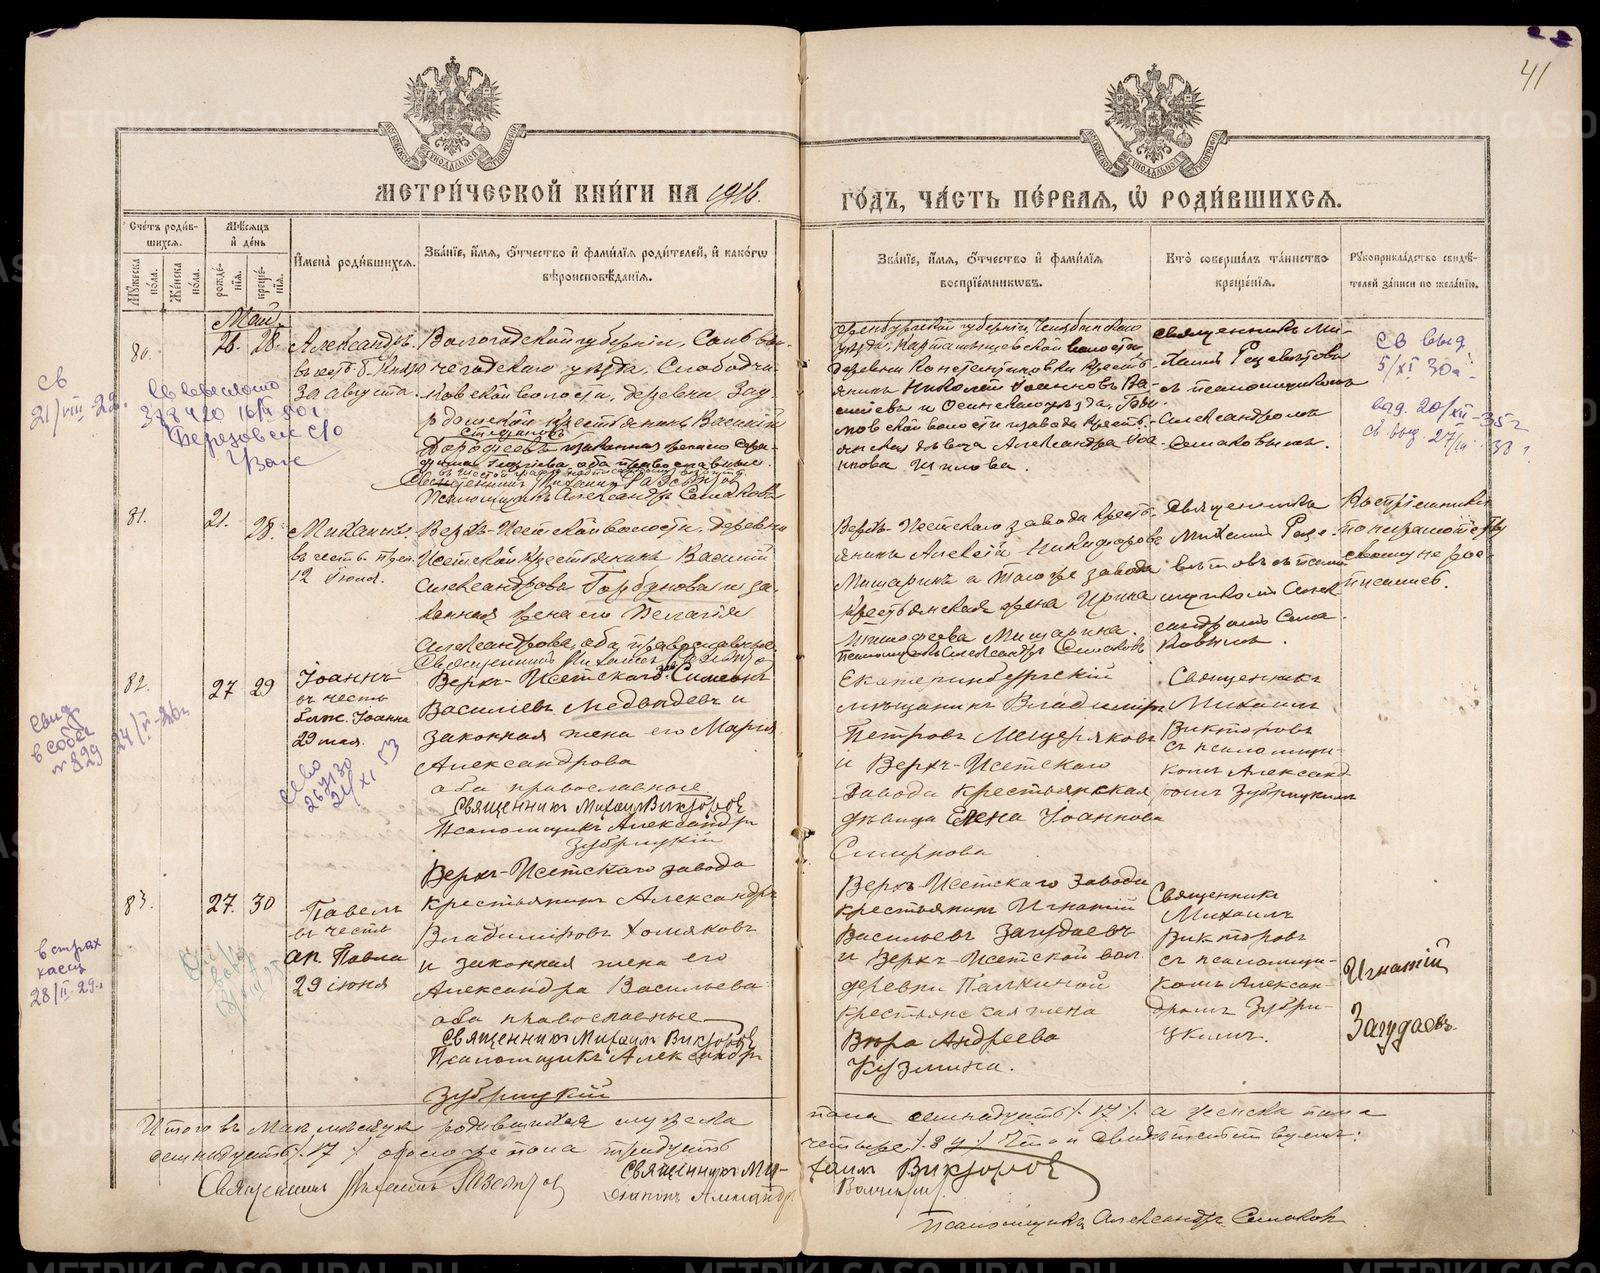 41
МОСКОВСКОЙ СѴНОДАЛЬНОЙ ТИПОГРАФІИ
МОСКОВСКОЙ СѴНОДАЛЬНОЙ ТИПОГРАФІИ
МЕТРИ́ЧЕСКОЙ КНИ́ГИ НА 1916.
ГО́ДЪ, ЧА́СТЬ ПЕ́РВАЯ, Ѡ҆ РОДИ́ВШИХСЯ.
Сче́тъ роди́в-
шихся.
Му́жеска по́ла.
Же́нска по́ла.
Мѣ́сяцъ
и҆ де́нь
рожде́-
нїѧ.
креще́-
нїѧ.
И҆мена̀ роди́вшихся.
Зва́нїе, и҆́мя, ѻ҆́тчество и҆ фами́лїя роди́телей, и҆ како́гѡ
вѣроисповѣ́данїя.
Зва́нїе, и҆́мя, ѻ҆́тчество и҆ фами́лїя
воспрїе́мниковъ.
Кто̀ соверша́лъ та́инство
креще́нїя.
Рукоприкла́дство свидѣ́-
телей за́писи по жела́нїю.
Май.
80.
26. 28.
Александръ.
въ честь б. Княз
30 августа.
Вологодской губерніи, Сольвы-
чегодскаго уѣзда, Слободчи-
ковской волости, деревни
крестьянинъ Василій
Степановъ
Дорофеевъ и законная жена его
Георгіева, оба православные.
Священникъ Михаилъ
Псаломщикъ Александръ Симаковъ
Оренбургской губерніи, Челябинскаго
уѣзда, Карташевской волости,
деревни Константиновки кресть-
янинъ Николай Іоанновъ Ва-
сильевъ и Осинскаго уѣзда,
крест-
янская дѣвица Александра Іоа-
ннова Шилова.
Священникъ Ми-
хаилъ
съ псаломщикомъ
Александромъ
Симаковымъ.
Св
21/VIII-22.
Березовск с/о
Св выд
5/XI 30г.
выд. 20/XII-35г
Св выд. 27/ 38г.
81.
21. 28.
Михаилъ.
въ честь преп.
12 Іюня.
Верхъ-Исетской волости, деревни
Исетской крестьянинъ Василій
Александровъ Горбуновъ и за-
конная жена его Пелагія
Александрова, оба православные.
Священникъ Михаилъ
Верхъ-Исетскаго завода крест-
янинъ Алексій Никифоровъ
Мишаринъ и тогоже завода
крестьянская жена Ирина
Тимофеева Мишарина.
Псаломщикъ Александръ Симаковъ
Священникъ
Михаилъ
съ псалом-
щикомъ Алек-
сандромъ Сима-
ковымъ.
Воспріемники
по неграмотству
своему не рос-
писались.
82.
27 29
Іоаннъ
въ честь
блж. Іоанна
29 мая.
Верхъ-Исетскаго зав. Симеонъ
Василіевъ Медвѣдевъ и
законная жена его Марія
Александрова
оба православные
Священникъ Михаилъ Викторовъ
Псаломщикъ Александръ
Зубрицкій
Екатеринбургскій
мѣщанинъ Владиміръ
Петровъ Мещеряковъ
и Верхъ-Исетскаго
завода крестьянская
дѣвица Елена Іоаннова
Смирнова
Священникъ
Михаилъ
Викторовъ
съ псаломщи-
комъ Александ-
ромъ Зубрицкимъ
83.
27. 30
Павелъ
въ честь
ап. Павла
29 іюня
Верхъ-Исетскаго завода
крестьянинъ Александръ
Владиміровъ Хомяковъ
и законная жена его
Александра Васильева
оба православные
Священникъ Михаилъ Викторовъ
Псаломщикъ Александръ
Зубрицкій
Верхъ-Исетскаго завода
крестьянинъ Игнатій
Васильевъ Загудаевъ
и Верхъ-Исетской вол
деревни Палкиной
крестьянская жена
Вѣра Андреева
Кузмина.
Священникъ
Михаилъ
Викторовъ
съ псаломщи-
комъ Алексан-
дромъ Зубри-
цкимъ.
Игнатій
Загудаевъ.
в страх
кассу
28/II-29г.
Итого въ Маѣ мѣсяцѣ родившихся мужска пола семнадцать /17/ а женска пола
семнадцать /17/ обоего же пола тридцать четыре /34/. Что и свидѣтельствуемъ:
Священникъ Михаилъ
Священникъ Михаилъ Викторовъ
Діаконъ
Псаломщикъ Александръ Симаковъ
METRIKI.GASO-URAL.RU